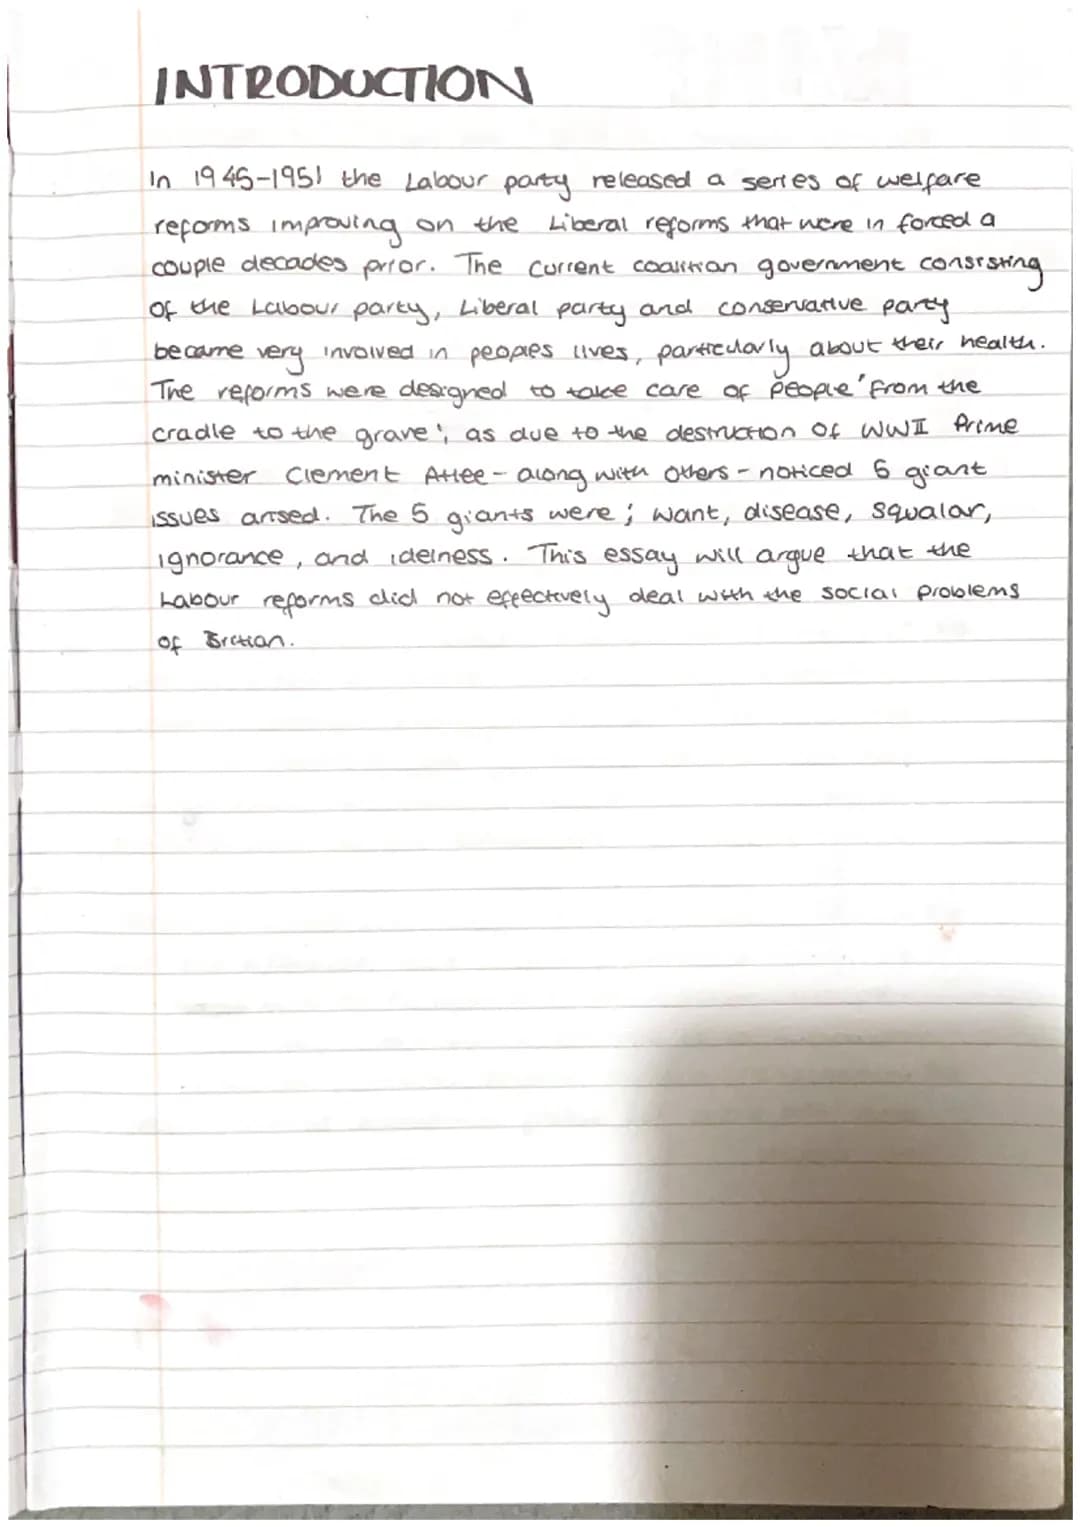 INTRODUCTION
In 1945-1951 the Labour party released a series of welfare
reforms improving on the Liberal reforms that were in forced a
couple decades prior. The current coalition government consisting
of the Labour party, Liberal party and conservative party
became very involved in peoples lives, particularly about their health.
The reforms were designed to take care of people 'from the
cradle to the grave', as due to the destruction of WWII Prime
minister Clement Attlee - along with others - noticed 5 giant
issues arised. The 5 giants were; want, disease, squalor,
ignorance, and idelness. This essay will argue that the
Labour reforms did not effectively deal with the social problems
of Brition.